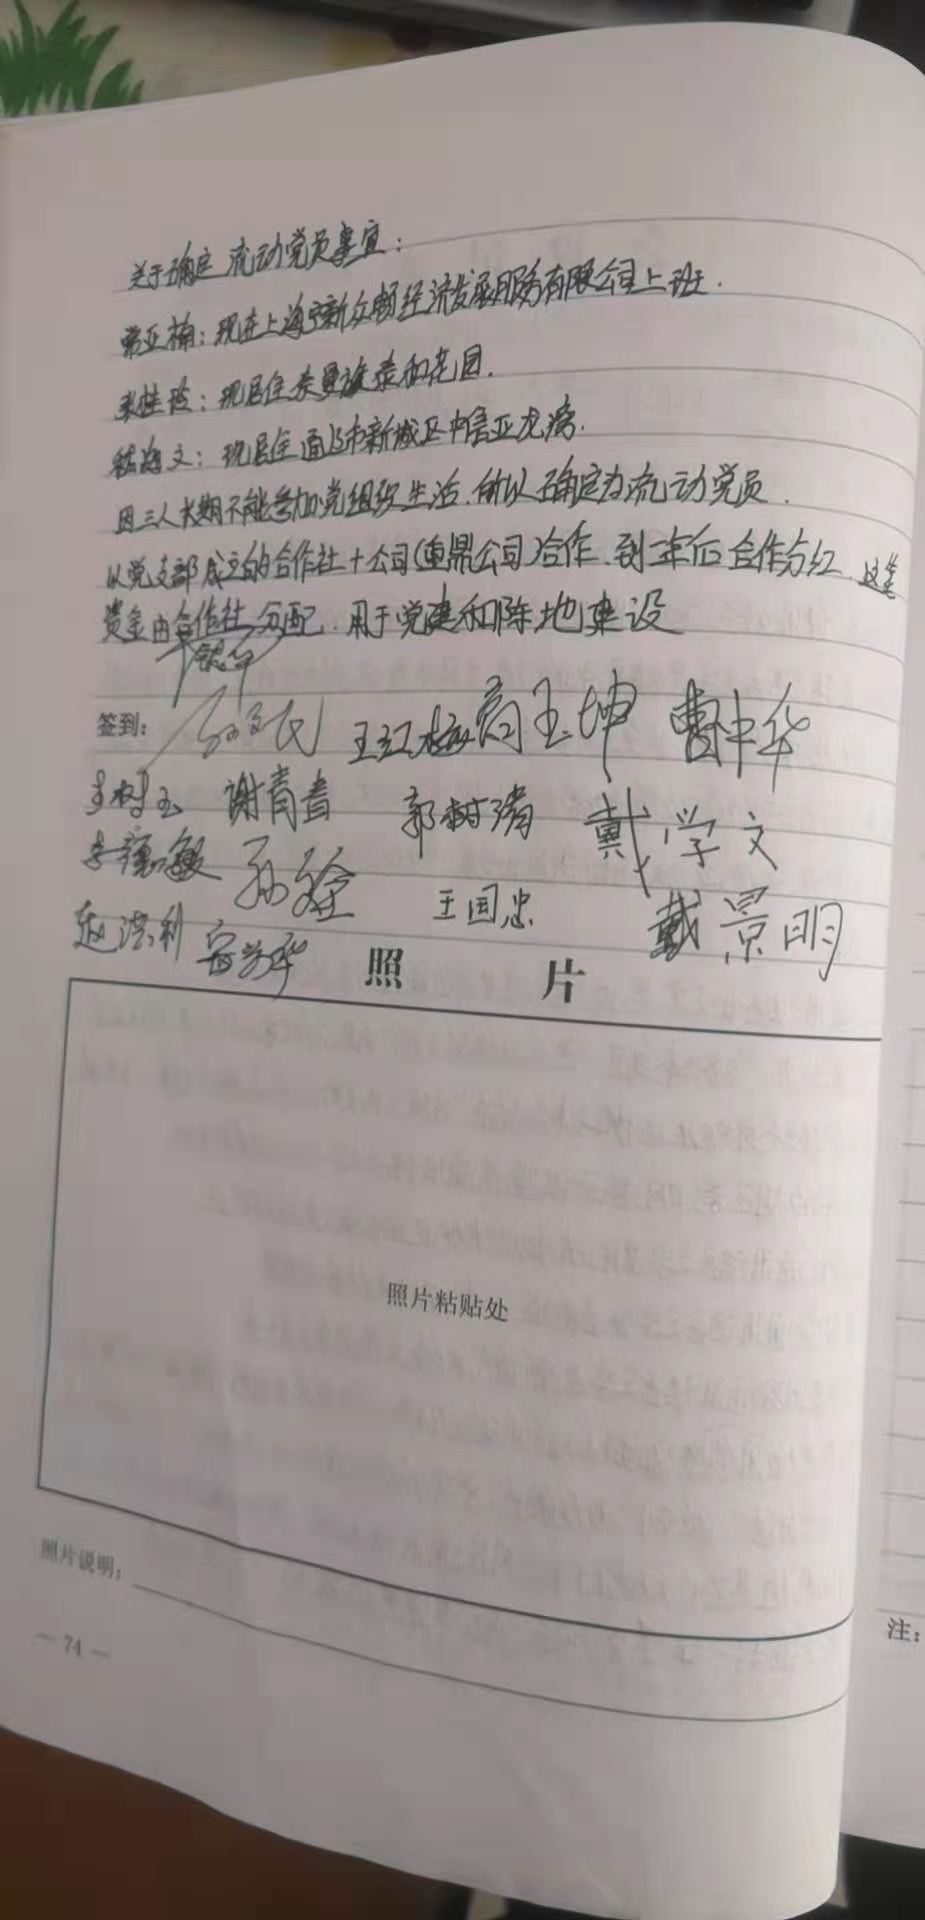 关于确定流动党员事宜：
常亚楠：现在上海新众畅经济发展服务有限公司上班．
张桂玲：现居住奈曼旗泰和花园．
文：现居住通辽市新城区中信亚龙湾．
因三人长期不能参加党组织生活．所以确定为流动党员．
以党支部成立的合作社＋公司(重鼎公司)合作．到三年后合作分红．这笔
资金由合作社分配．用于党建和阵地建设
签到： 王红梅 王坤 曹中华
李树玉 谢青春 郭树清 戴学文
李德敏 孙 王国忠
赵洪利 华 戴景明
照 片
照片粘贴处
照片说明：
— 74 —
注：